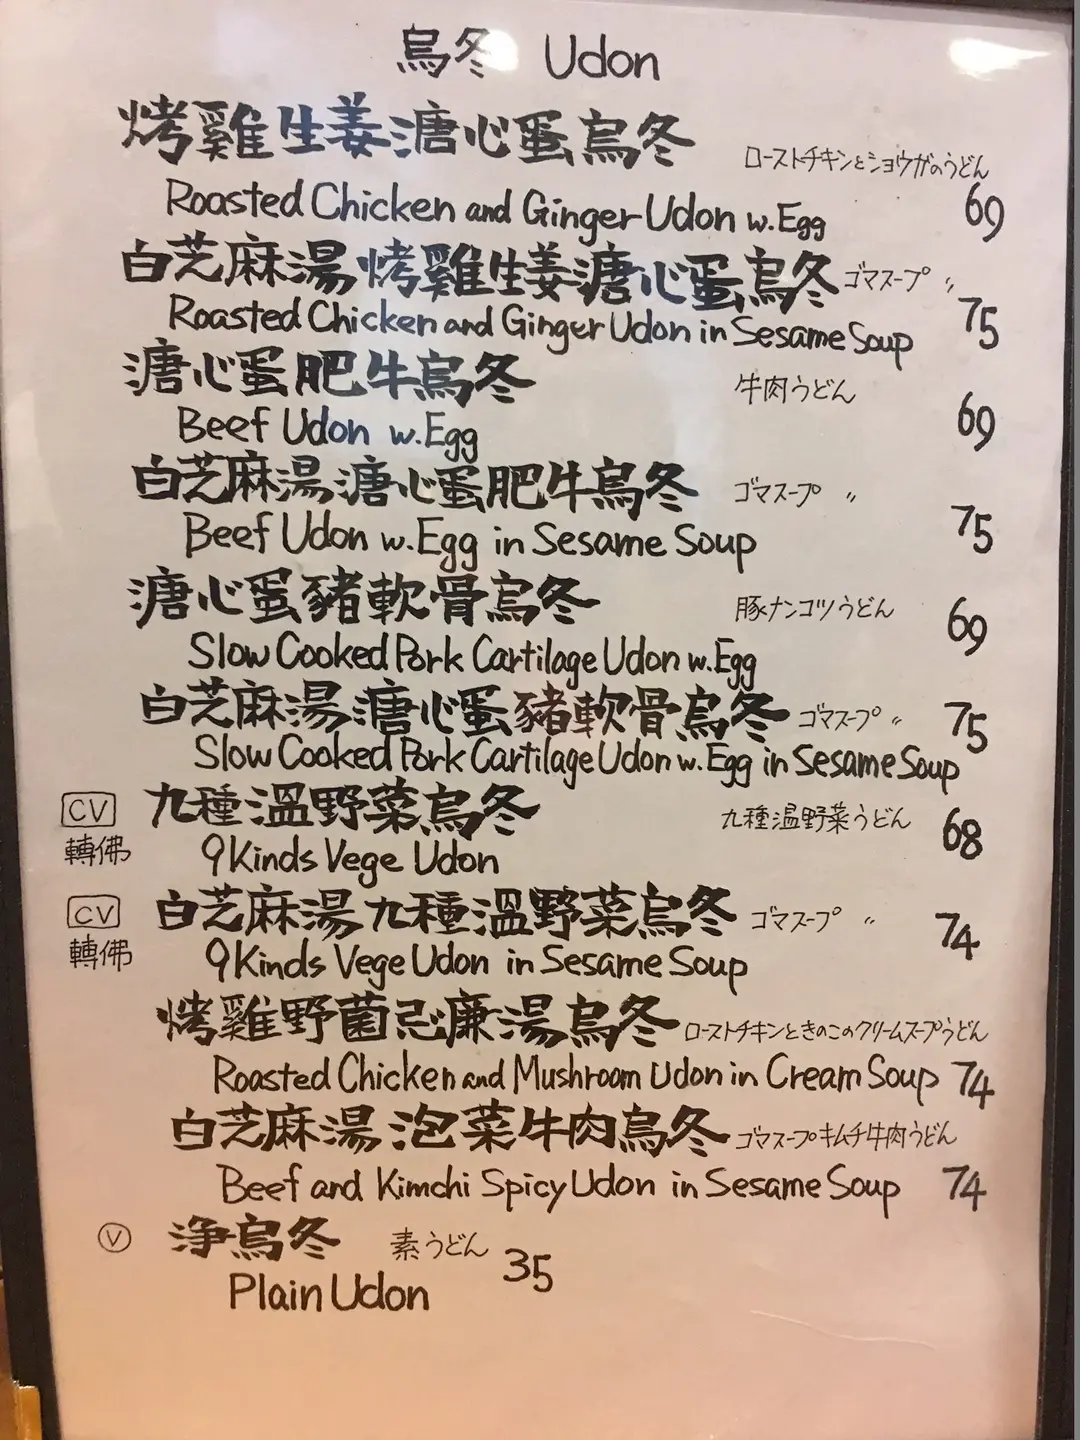 烏冬 Udon
烤雞生姜溏心蛋烏冬 ローストチキンとショウガのうどん
Roasted Chicken and Ginger Udon w.Egg 69
白芝麻湯烤雞生姜溏心蛋烏冬 ゴマスープ 〃
Roasted Chicken and Ginger Udon in Sesame Soup 75
溏心蛋肥牛烏冬 牛肉うどん
Beef Udon w.Egg 69
白芝麻湯溏心蛋肥牛烏冬 ゴマスープ 〃
Beef Udon w.Egg in Sesame Soup 75
溏心蛋豬軟骨烏冬 豚ナンコツうどん 69
Slow Cooked Pork Cartilage Udon w.Egg
白芝麻湯溏心蛋豬軟骨烏冬 ゴマスープ 〃 75
Slow Cooked Pork Cartilage Udon w.Egg in Sesame Soup
CV 九種溫野菜烏冬 九種温野菜うどん 68
轉佛 9 Kinds Vege Udon
CV 白芝麻湯九種溫野菜烏冬 ゴマスープ 〃 74
轉佛 9 Kinds Vege Udon in Sesame Soup
烤雞野菌忌廉湯烏冬 ローストチキンときのこのクリームスープうどん
Roasted Chicken and Mushroom Udon in Cream Soup 74
白芝麻湯泡菜牛肉烏冬 ゴマスープキムチ牛肉うどん
Beef and Kimchi Spicy Udon in Sesame Soup 74
V 淨烏冬 素うどん 35
Plain Udon